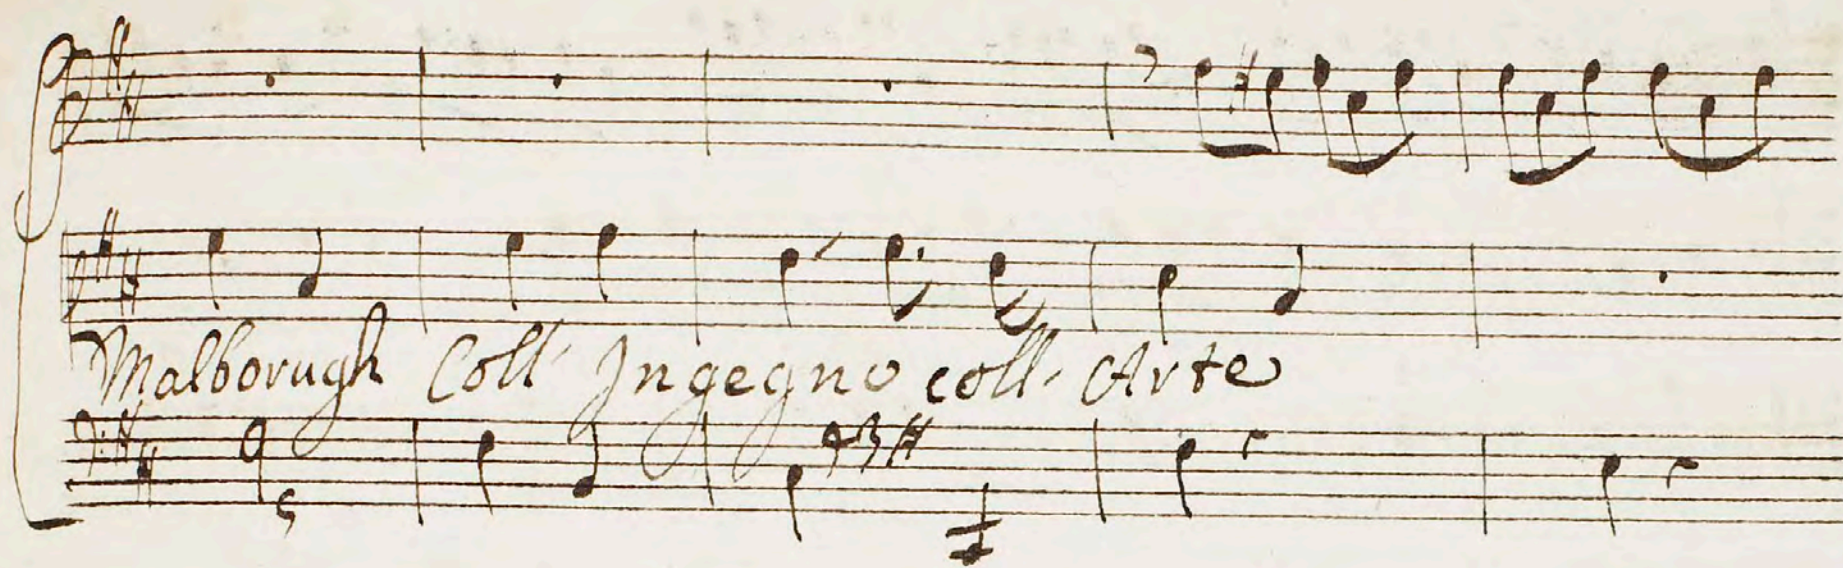 Malborugh Coll' Ingegno coll' Arte